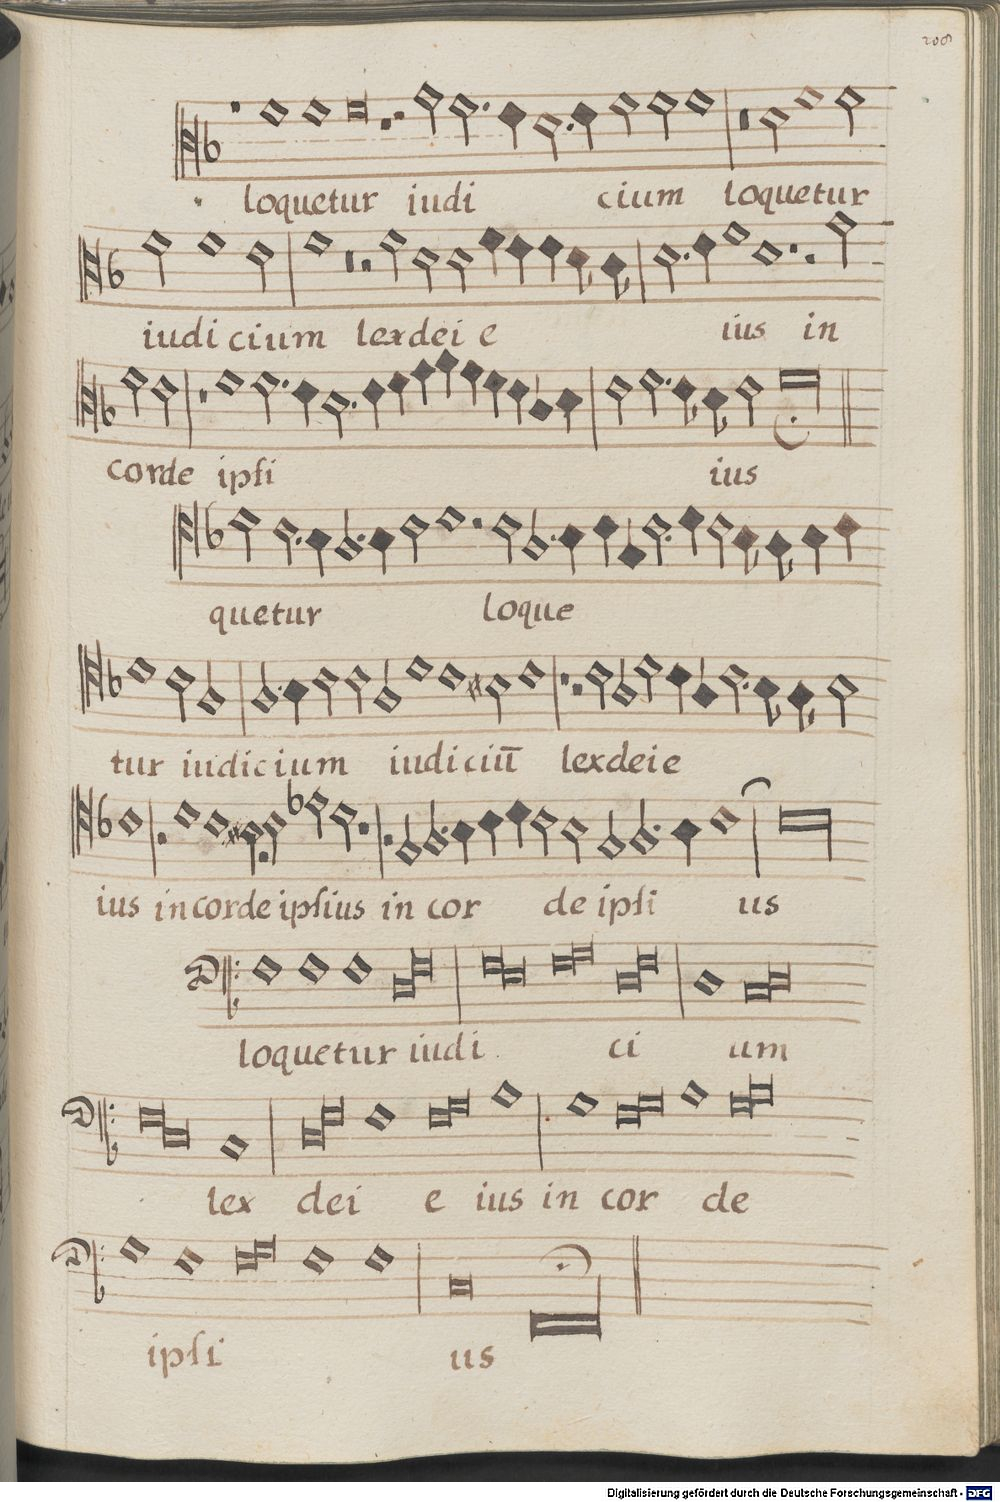 208
loquetur iudi cium loquetur
iudi cium lex dei e ius in
corde ipsi ius
quetur loque
tur iudicium iudiciū lex dei e
ius in corde ipsius in cor de ipsi us
loquetur iudi ci um
lex dei e ius in cor de
ipsi us
Digitalisierung gefördert durch die Deutsche Forschungsgemeinschaft - DFG